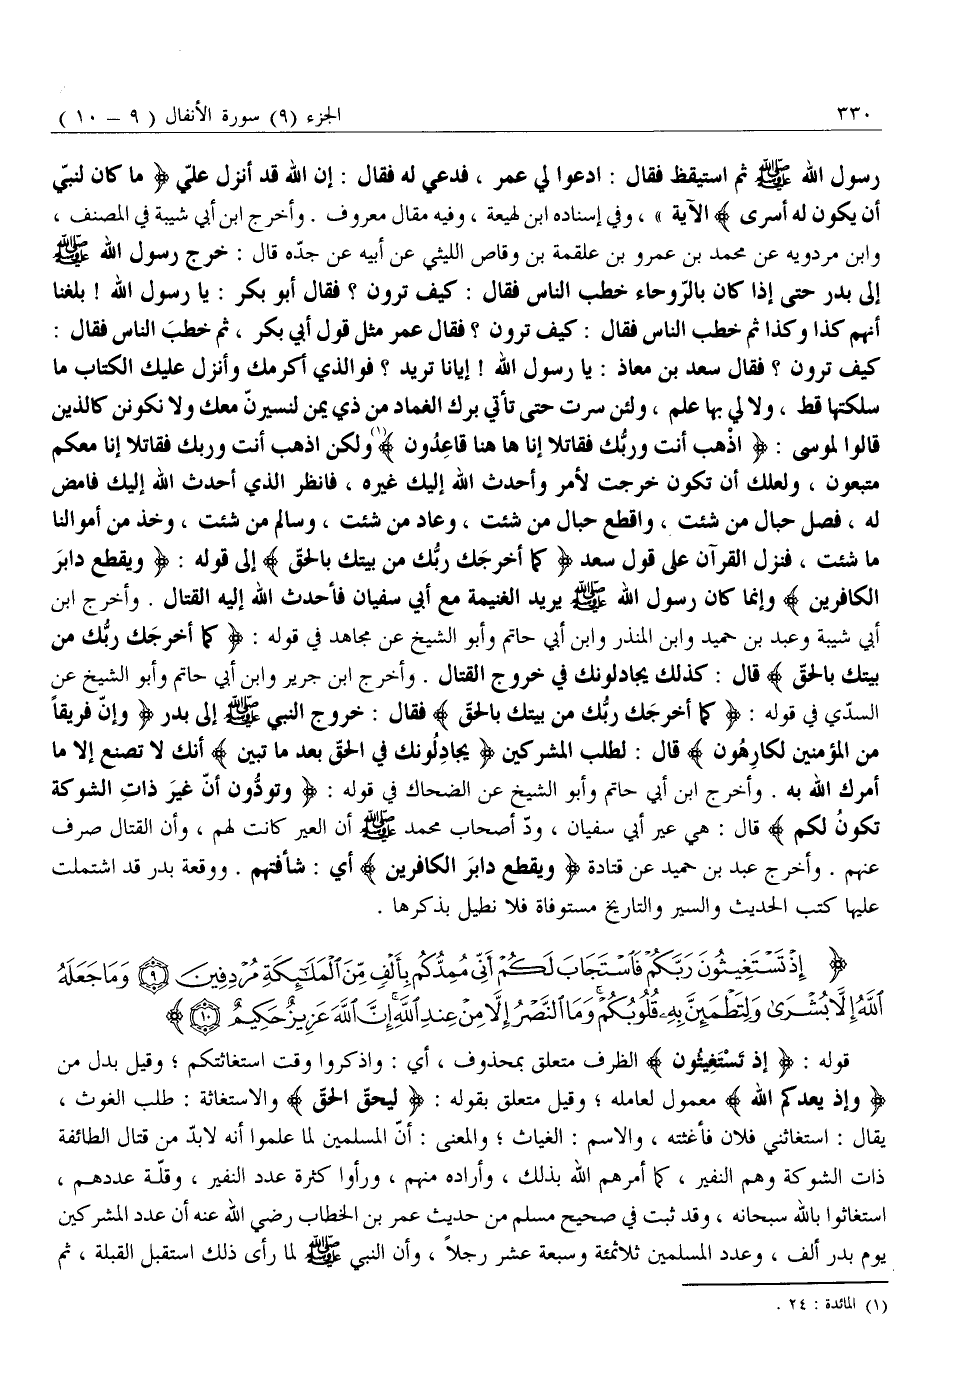 ٣٣٠ الجزء (٩) سورة الأنفال ( ٩ – ١٠ )
رسول الله ﷺ ثم استيقظ فقال : ادعوا لي عمر ، فدعي له فقال : إن الله قد أنزل عليّ ﴿ ما كان لنبيّ
أن يكون له أسرى ﴾ الآية » ، وفي إسناده ابن لهيعة ، وفيه مقال معروف . وأخرج ابن أبي شيبة في المصنف ،
وابن مردويه عن محمد بن عمرو بن علقمة بن وقاص الليثي عن أبيه عن جدّه قال : خرج رسول الله ﷺ
إلى بدر حتى إذا كان بالرّوحاء خطب الناس فقال : كيف ترون ؟ فقال أبو بكر : يا رسول الله ! بلغنا
أنهم كذا وكذا ثم خطب الناس فقال : كيف ترون ؟ فقال عمر مثل قول أبي بكر ، ثم خطبَ الناس فقال :
كيف ترون ؟ فقال سعد بن معاذ : يا رسول الله ! إيانا تريد ؟ فوالذي أكرمك وأنزل عليك الكتاب ما
سلكتها قط ، ولا لي بها علم ، ولئن سرت حتى تأتي برك الغماد من ذي يمن لنسيرنّ معك ولا نكونن كالذين
قالوا لموسى : ﴿ اذْهب أنت وربُّك فقاتلا إنا ها هنا قاعِدُون ﴾(١) ولكن اذهب أنت وربك فقاتلا إنا معكم
متبعون ، ولعلك أن تكون خرجت لأمر وأحدث الله إليك غيره ، فانظر الذي أحدث الله إليك فامض
له ، فصل حبال من شئت ، واقطع حبال من شئت ، وعاد من شئت ، وسالم من شئت ، وخذ من أموالنا
ما شئت ، فنزل القرآن على قول سعد ﴿ كما أخرجَك ربُّك من بيتك بالحقّ ﴾ إلى قوله : ﴿ ويقطع دابرَ
الكافرين ﴾ وإنما كان رسول الله ﷺ يريد الغنيمة مع أبي سفيان فأحدث الله إليه القتال . وأخرج ابن
أبي شيبة وعبد بن حميد وابن المنذر وابن أبي حاتم وأبو الشيخ عن مجاهد في قوله : ﴿ كما أخرجَك ربُّك من
بيتك بالحقّ ﴾ قال : كذلك يجادلونك في خروج القتال . وأخرج ابن جرير وابن أبي حاتم وأبو الشيخ عن
السدّي في قوله : ﴿ كما أخرجَك ربُّك من بيتك بالحقّ ﴾ فقال : خروج النبي ﷺ إلى بدر ﴿ وإنّ فريقاً
من المؤمنين لكارِهُون ﴾ قال : لطلب المشركين ﴿ يجادِلُونك في الحقّ بعد ما تبين ﴾ أنك لا تصنع إلا ما
أمرك الله به . وأخرج ابن أبي حاتم وأبو الشيخ عن الضحاك في قوله : ﴿ وتودُّون أنّ غيرَ ذاتِ الشوكة
تكونُ لكم ﴾ قال : هي عير أبي سفيان ، ودّ أصحاب محمد ﷺ أن العير كانت لهم ، وأن القتال صرف
عنهم . وأخرج عبد بن حميد عن قتادة ﴿ ويقطع دابرَ الكافرين ﴾ أي : شأفتهم . ووقعة بدر قد اشتملت
عليها كتب الحديث والسير والتاريخ مستوفاة فلا نطيل بذكرها .
﴿ إِذْ تَسْتَغِيثُونَ رَبَّكُمْ فَاسْتَجَابَ لَكُمْ أَنِّي مُمِدُّكُم بِأَلْفٍ مِّنَ الْمَلَائِكَةِ مُرْدِفِينَ ۝٩ وَمَا جَعَلَهُ
اللَّهُ إِلَّا بُشْرَىٰ وَلِتَطْمَئِنَّ بِهِ قُلُوبُكُمْ وَمَا النَّصْرُ إِلَّا مِنْ عِندِ اللَّهِ إِنَّ اللَّهَ عَزِيزٌ حَكِيمٌ ۝١٠ ﴾
قوله : ﴿ إذ تَسْتَغِيثُون ﴾ الظرف متعلق بمحذوف ، أي : واذكروا وقت استغاثتكم ؛ وقيل بدل من
﴿ وإذ يعدكم الله ﴾ معمول لعامله ؛ وقيل متعلق بقوله : ﴿ ليحقّ الحقّ ﴾ والاستغاثة : طلب الغوث ،
يقال : استغاثني فلان فأغثته ، والاسم : الغياث ؛ والمعنى : أنّ المسلمين لما علموا أنه لابدّ من قتال الطائفة
ذات الشوكة وهم النفير ، كما أمرهم الله بذلك ، وأراده منهم ، ورأوا كثرة عدد النفير ، وقلّة عددهم ،
استغاثوا بالله سبحانه ، وقد ثبت في صحيح مسلم من حديث عمر بن الخطاب رضي الله عنه أن عدد المشركين
يوم بدر ألف ، وعدد المسلمين ثلاثمئة وسبعة عشر رجلاً ، وأن النبي ﷺ لما رأى ذلك استقبل القبلة ، ثم
(١) المائدة : ٢٤ .